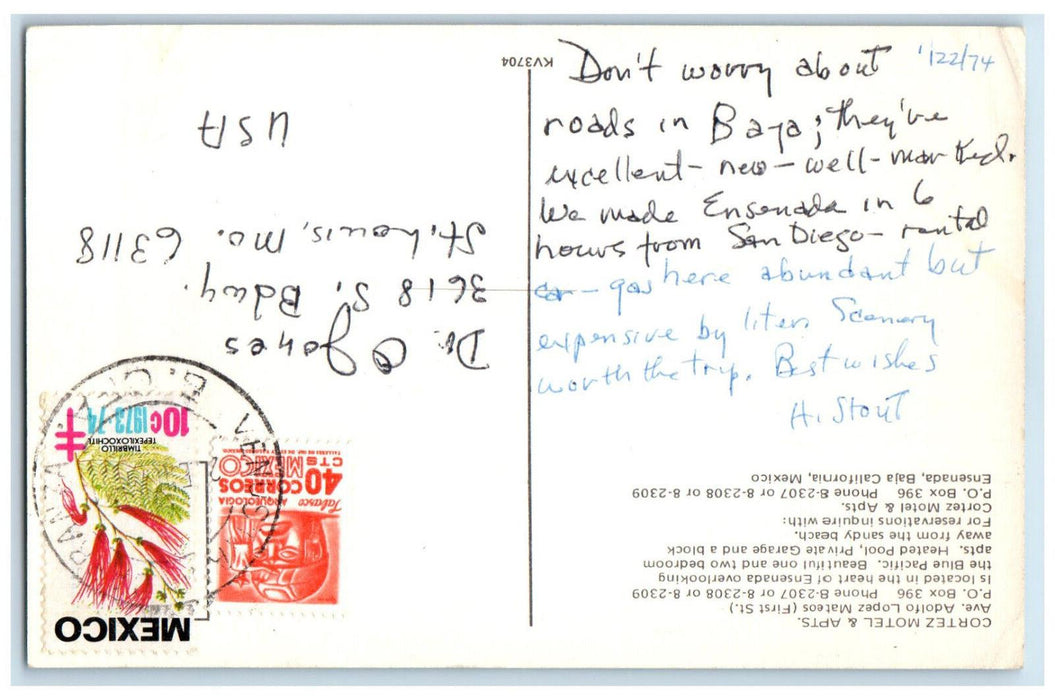 1/22/74
Don't worry about
roads in Baja; they've
excellent - new - well - marked.
We made Ensenada in 6
hours from San Diego - rental
car - gas here abundant but
expensive by liter. Scenery
worth the trip. Best wishes
H. Stout
KV3704
Dr. O Jones
3618 S. Bdwy.
St. Louis, Mo. 63118
USA
CORTEZ MOTEL & APTS.
Ave. Adolfo Lopez Mateos (First St.)
P.O. Box 396 Phone 8-2307 or 8-2308 or 8-2309
Is located in the heart of Ensenada overlooking
the Blue Pacific. Beautiful one and two bedroom
apts. Heated Pool, Private Garage and a block
away from the sandy beach.
For reservations inquire with:
Cortez Motel & Apts.
P.O. Box 396 Phone 8-2307 or 8-2308 or 8-2309
Ensenada, Baja California, Mexico
MEXICO
TIMBRILLO
TEPEXILOXOCHITL
10¢ 1973-74
Tabasco
ARQUEOLOGIA
40 CORREOS
CTS MEXICO
B. C.